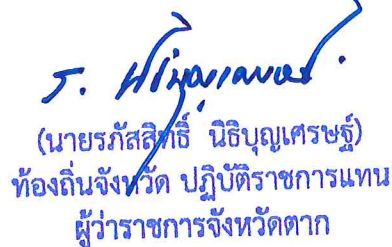 (นายรภัสสิทธิ์ นิธิบุญเศรษฐ์)
ท้องถิ่นจังหวัด ปฏิบัติราชการแทน
ผู้ว่าราชการจังหวัดตาก